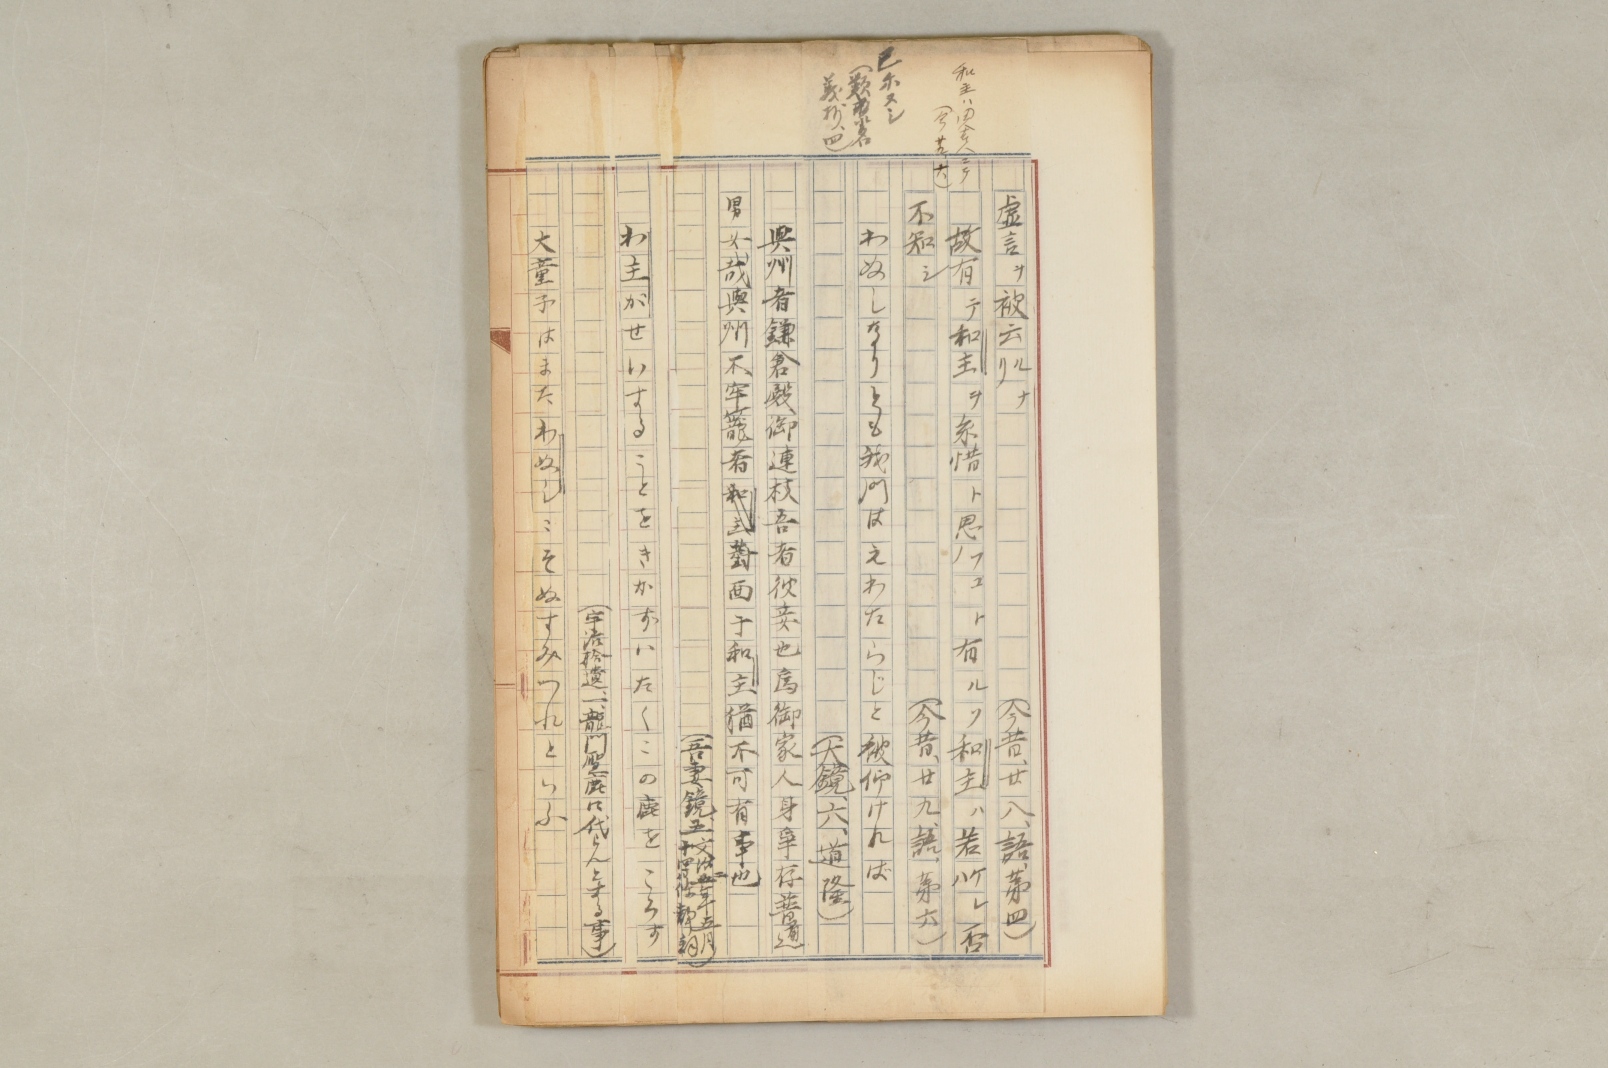 和主ハ田舎人ニテ
(今昔、廿六)
已ホスシ
(類聚名
義抄、四)
虚言ヲ被云ルナリ
(今昔、廿八、語、第四)
故有テ和主ヲ糸惜ト思フコト有ルソ和主ハ若ケレハ否
不知シ
(今昔、廿九、語、第六)
わぬしなりとも我門はえわたらじと被仰けれは
(大鏡、六、道隆)
與州者鎌倉殿御連枝吾者彼妾也爲御家人身爭存普通
男女哉與州不牢籠者和主對面于和主猶不可有事也
(吾妻鏡五、文治二年五月
十四日條、静詞)
わ主がせいすることをきかずいたくこの鹿をころす
(宇治拾遺、一、龍門聖鹿に代らんとする事)
大童子はまたわぬしこそぬすみつれといふ